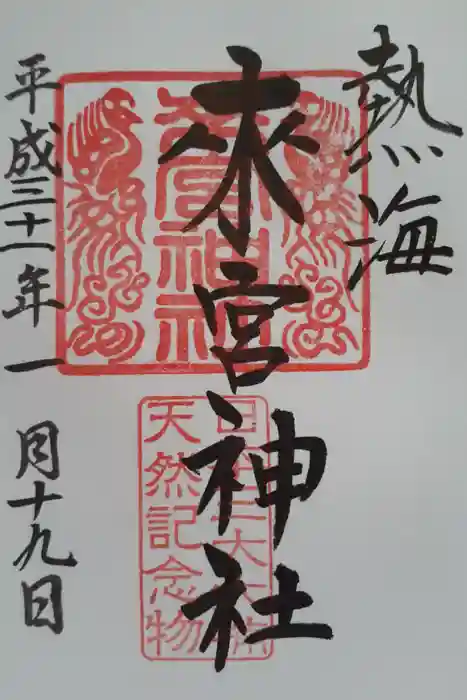 熱海
來宮神社
來宮神社
日本三大大楠
天然記念物
平成三十一年一月十九日